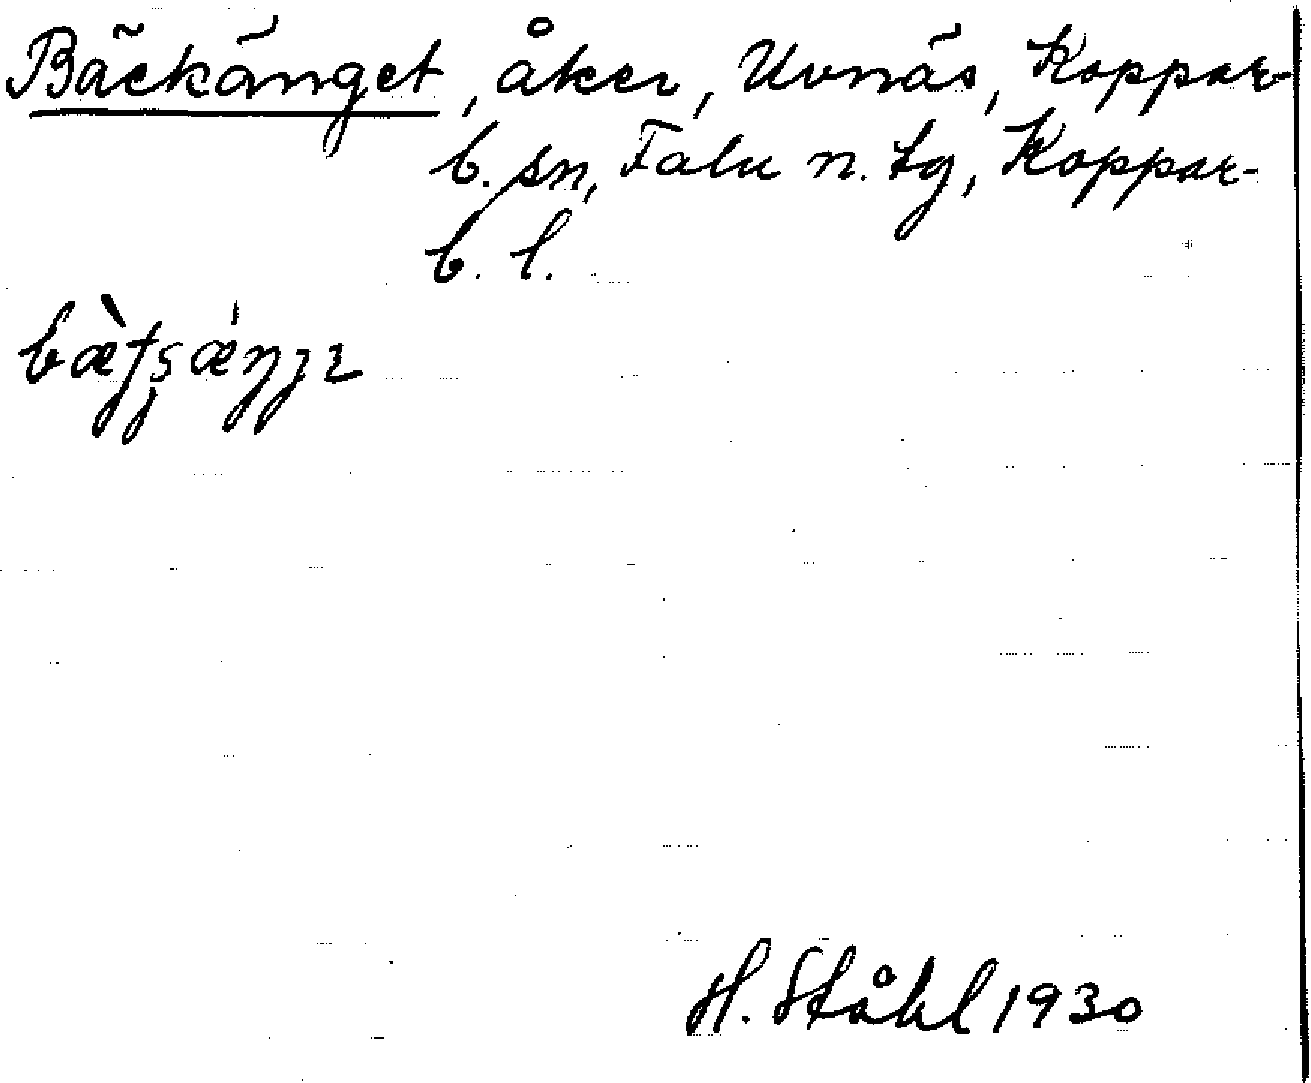 Bäckänget, åker, Uvnäs, Koppar-
b. sn, Falu n. tg, Koppar-
b. l.
H. Ståhl 1930